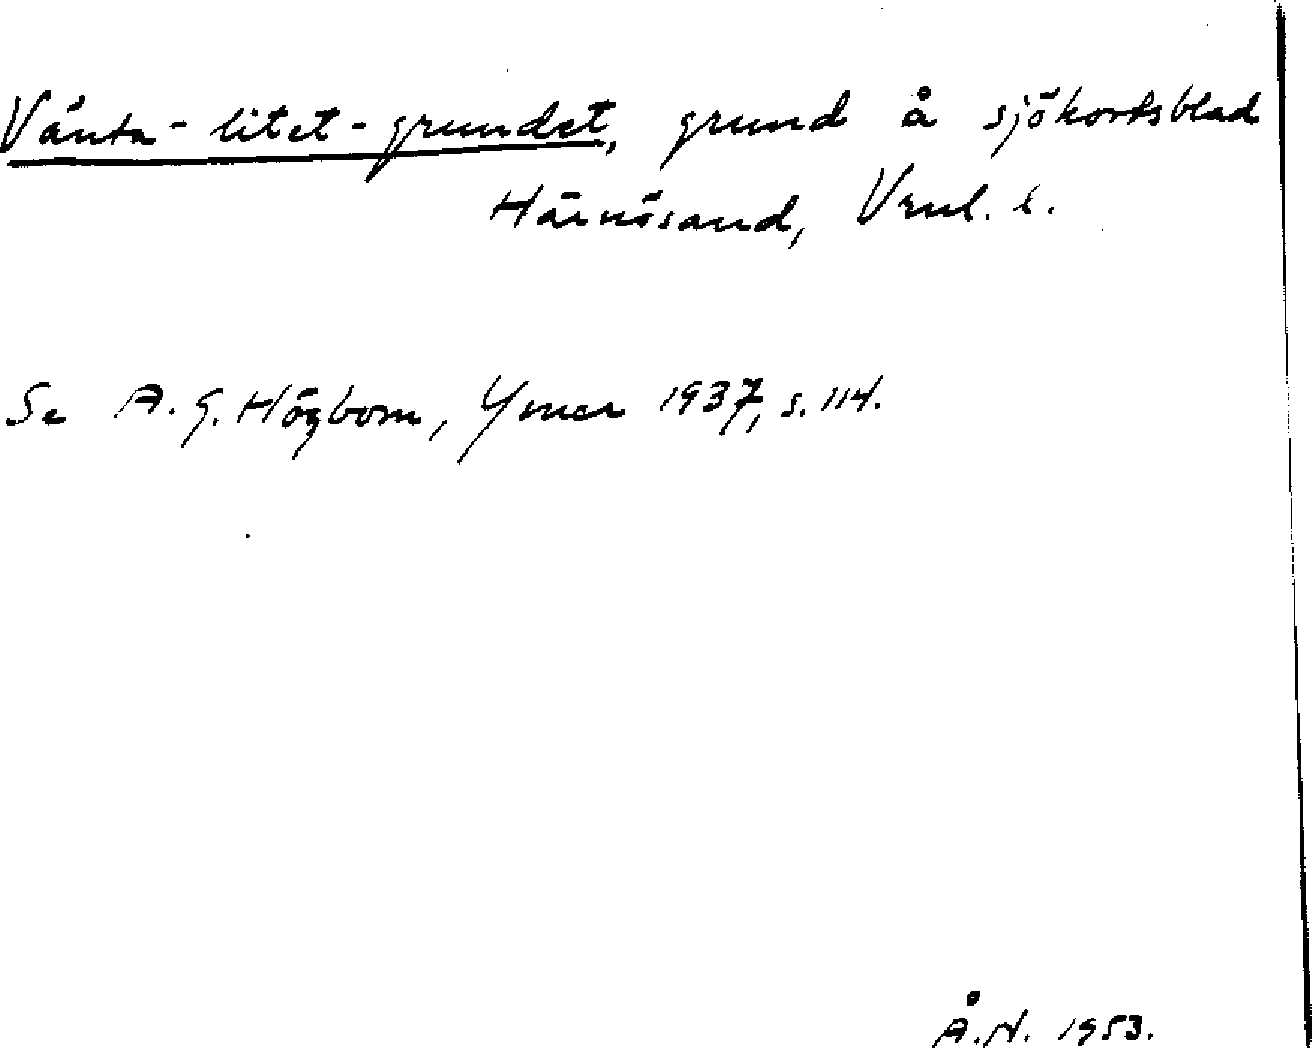 Vänta-litet-grundet, grund å sjökortsblad
Härnösand, Vnl. l.
Se A. G. Högbom, Ymer 1937, s. 114.
Å.N. 1953.